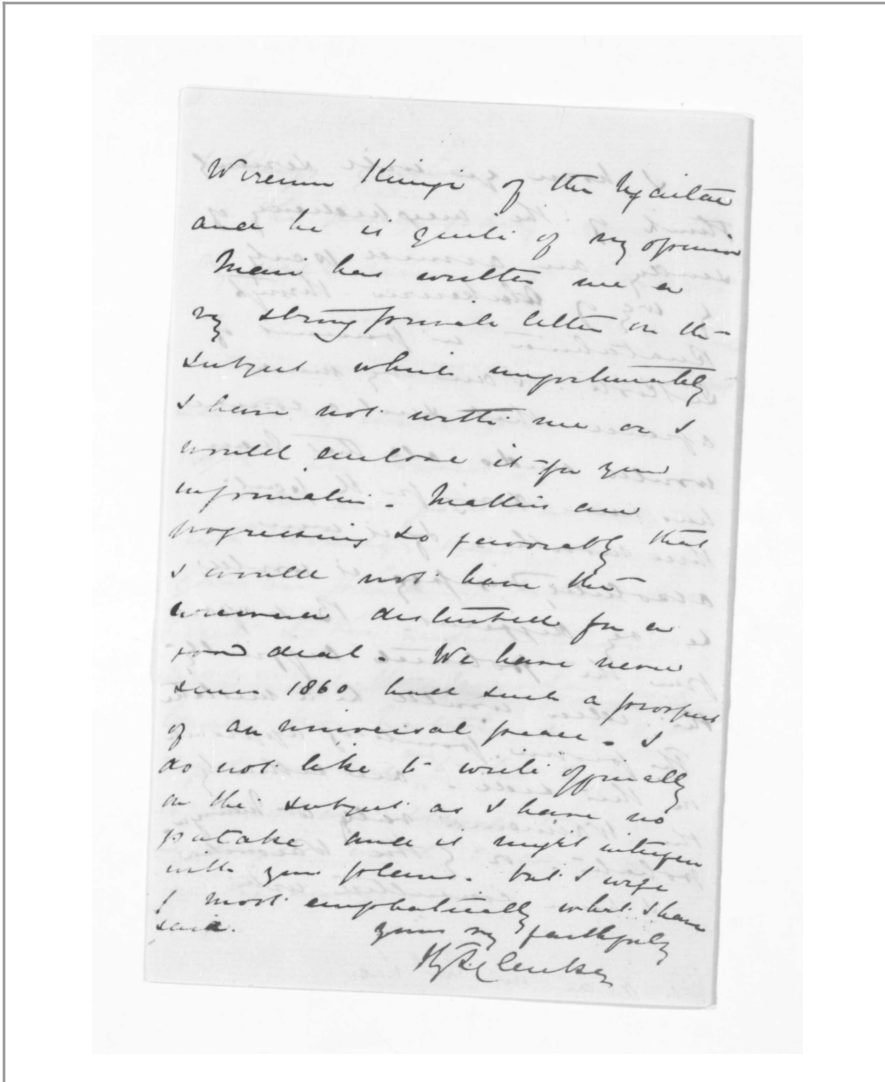 Wiremu Kingi of the Ngaitai
and he is quite of my opinion
Mair has written me a
very strong private letter on the
subject which unfortunately
I have not with me or I
would enclose it for your
information. Matters are
progressing so favorably that
I would not have the
disturbed for a
good deal. We have never
since 1860 had such a prospect
of an universal peace. I
do not like to write officially
on the subject as I have no
and it might interfere
with your plans. but I
I most emphatically what I have
said. yours very faithfully
H. T. Clarke